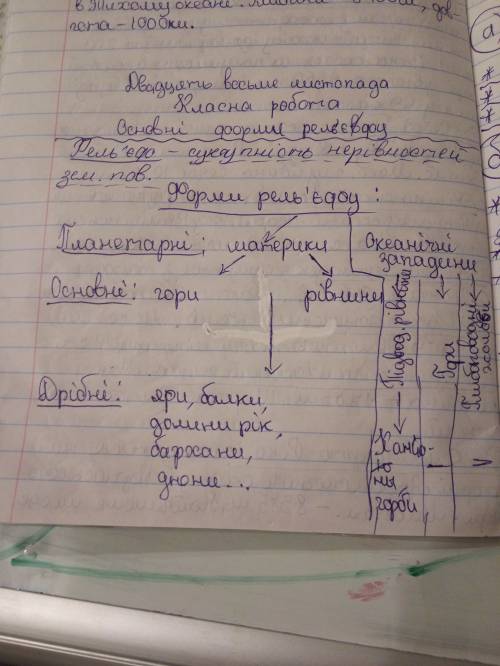 в Тихому океані.
гота - 100 км.
Двадцять восьме листопада
Класна робота
Основні форми рельєфу
Рель'єф - сукупність нерівностей
зем. пов.
Форми рель'єфу:
Планетарні; материки
Океанічні
западини
Основні: гори рівнини
Підвод. рівнини
Гори
Глибоководні
жолоби
Дрібні: яри, балки,
долини рік,
бархани,
дюни...
Каньйо-
ни,
горби
а